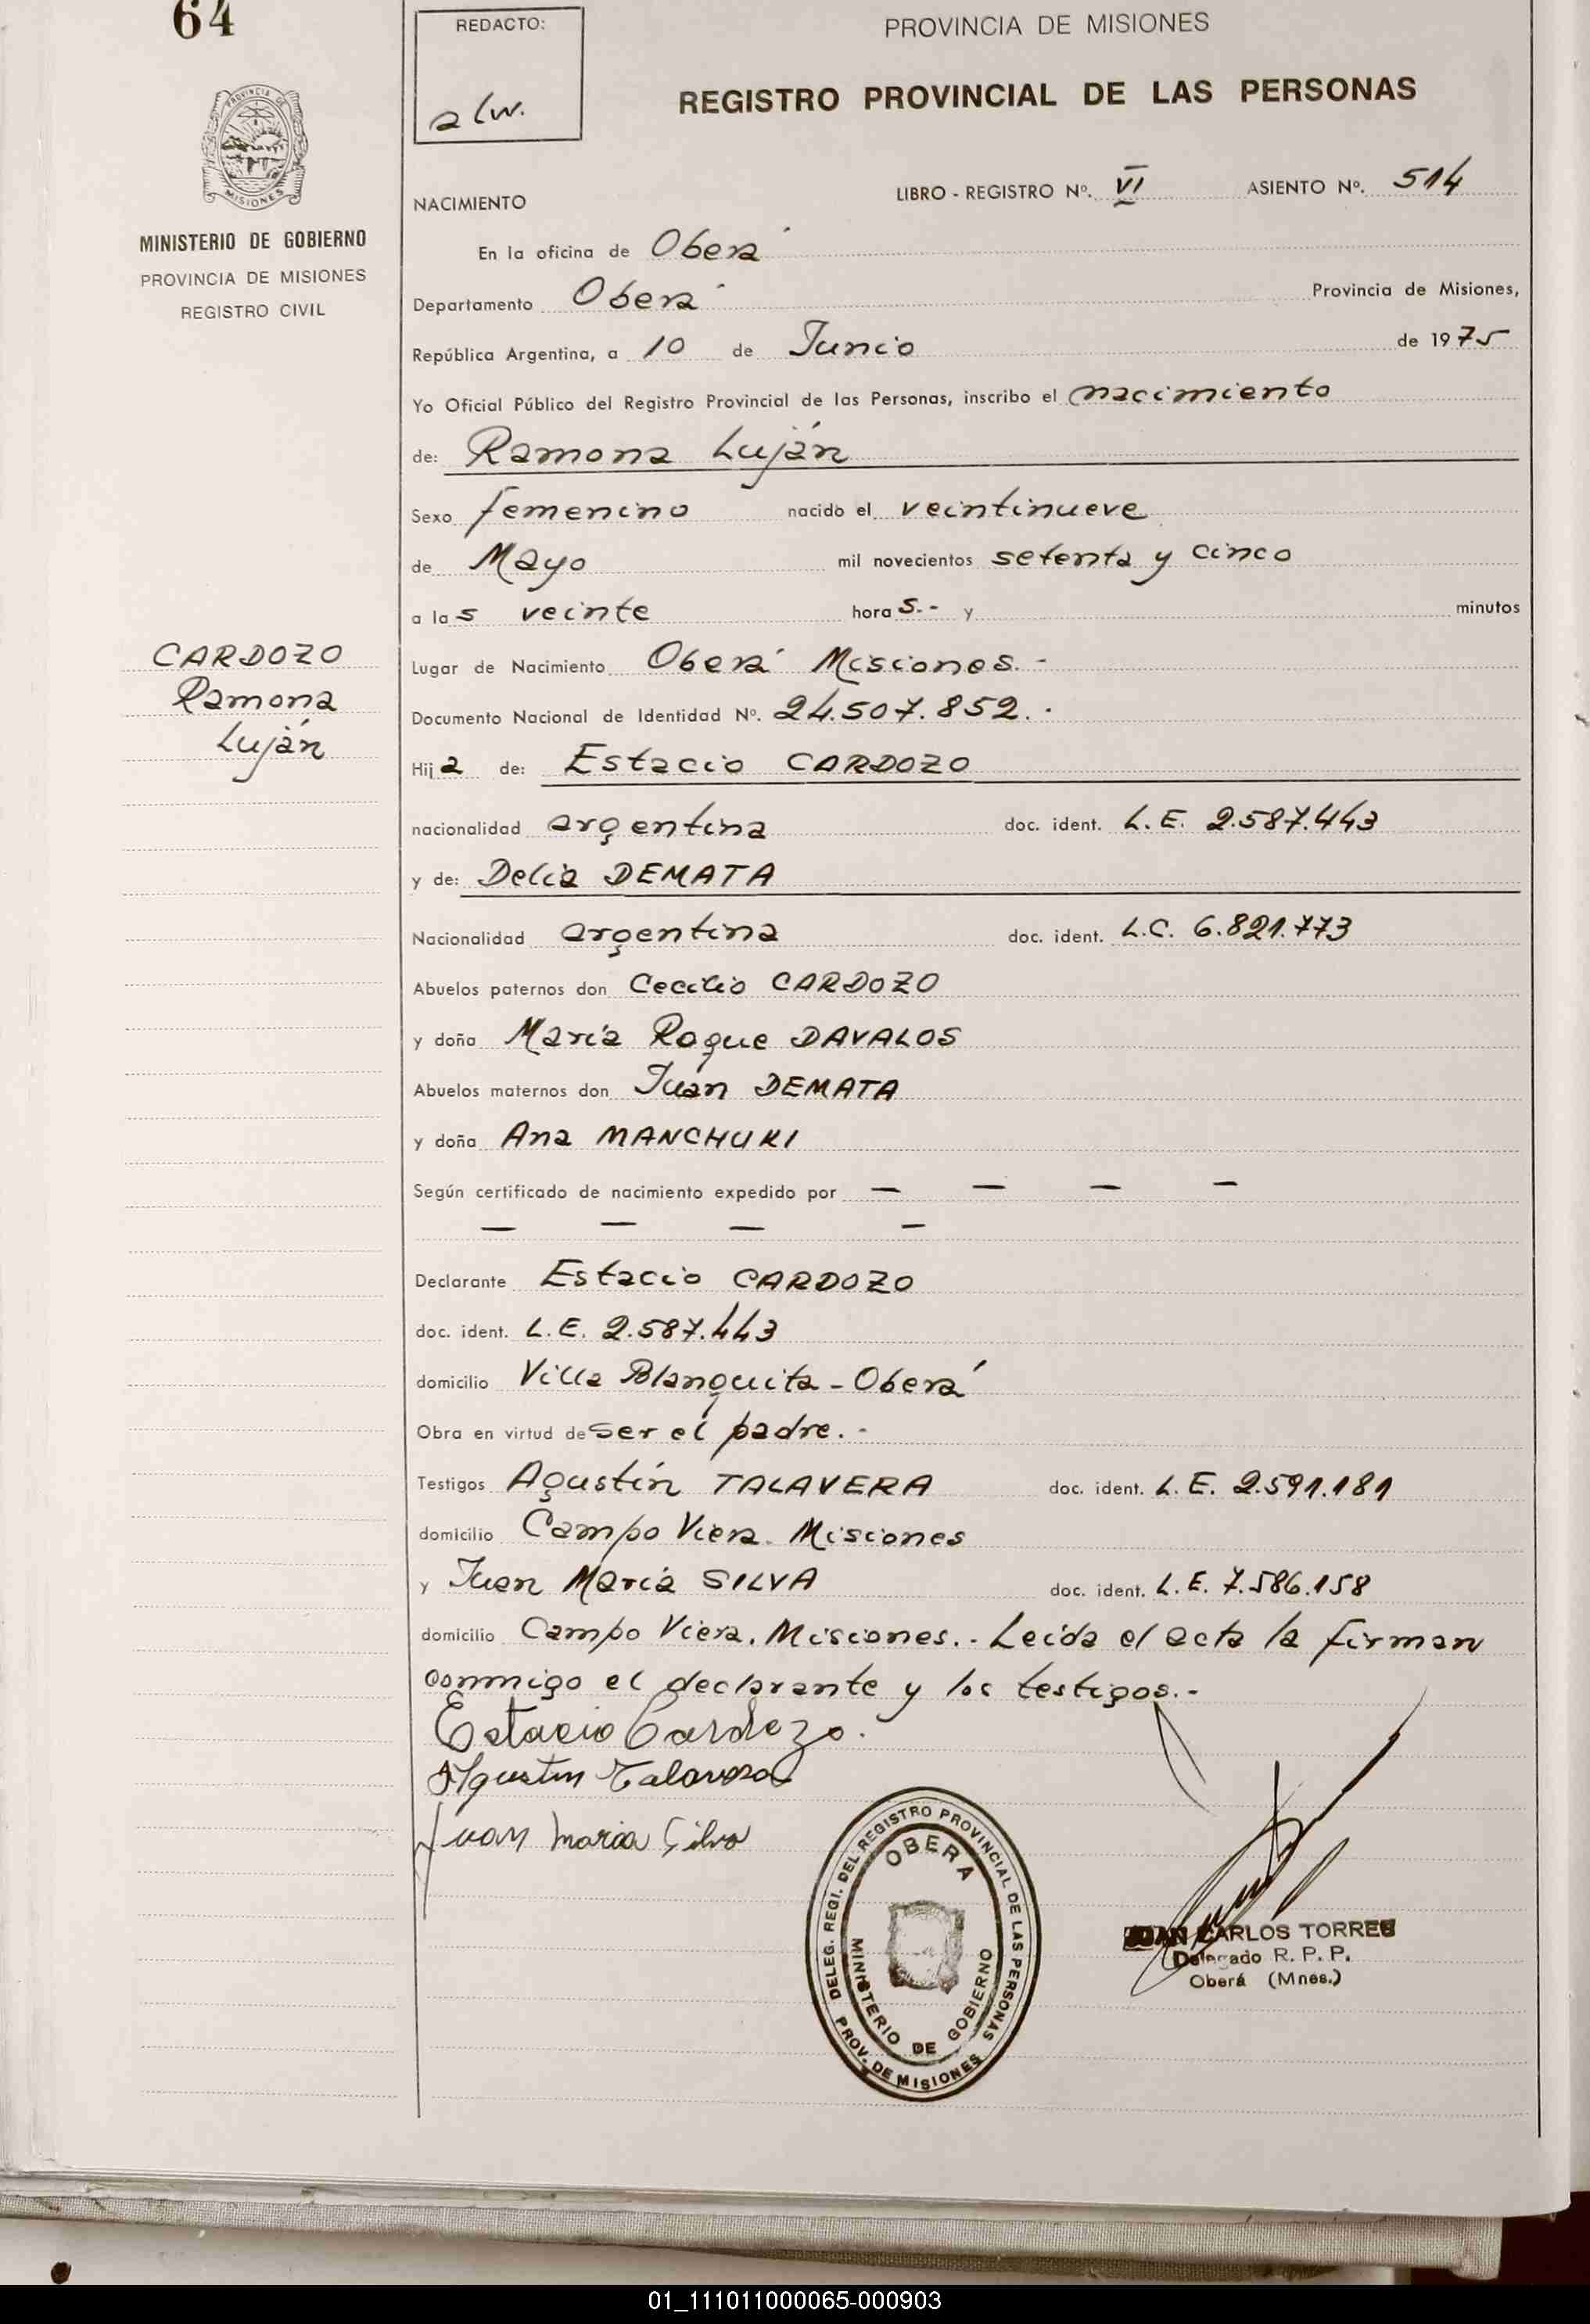 64
REDACTO:
alw.
PROVINCIA DE MISIONES
REGISTRO PROVINCIAL DE LAS PERSONAS
PROVINCIA DE
MISIONES
MINISTERIO DE GOBIERNO
PROVINCIA DE MISIONES
REGISTRO CIVIL
NACIMIENTO LIBRO - REGISTRO Nº. VI ASIENTO Nº. 514
En la oficina de Oberá
Departamento Oberá Provincia de Misiones,
República Argentina, a 10 de Junio de 1975
Yo Oficial Público del Registro Provincial de las Personas, inscribo el nacimiento
de: Ramona Luján
Sexo femenino nacido el veintinueve
de Mayo mil novecientos setenta y cinco
a las veinte horas.- y minutos
CARDOZO
Ramona
Luján
Lugar de Nacimiento Oberá Misiones.-
Documento Nacional de Identidad Nº. 24.507.852.-
Hija de: Estacio CARDOZO
nacionalidad argentina doc. ident. L.E. 2.587.443
y de: Delia DEMATA
Nacionalidad argentina doc. ident. L.C. 6.821.773
Abuelos paternos don Cecilio CARDOZO
y doña María Roque DAVALOS
Abuelos maternos don Juan DEMATA
y doña Ana MANCHUKI
Según certificado de nacimiento expedido por — — — —
— — — —
Declarante Estacio CARDOZO
doc. ident. L.E. 2.587.443
domicilio Villa Blanquita - Oberá
Obra en virtud de ser el padre.-
Testigos Agustín TALAVERA doc. ident. L.E. 2.591.181
domicilio Campo Viera. Misiones
y Juan María SILVA doc. ident. L.E. 7.586.158
domicilio Campo Viera. Misiones.- Leída el acta la firman
conmigo el declarante y los testigos.-
Estacio Cardozo.
Agustin Talavera
Juan Maria Silva
DELEG. REGI. DEL REGISTRO PROVINCIAL DE LAS PERSONAS
PROV. DE MISIONES
OBERA
MINISTERIO DE GOBIERNO
JUAN CARLOS TORRES
Delegado R. P. P.
Oberá (Mnes.)
01_111011000065-000903